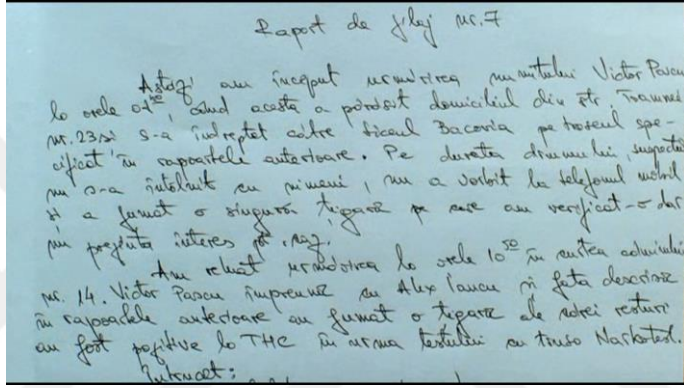 Raport de filaj nr. 7
Astăzi am început urmărirea numitului Victor Pascu
la orele 07⁵⁰, când acesta a părăsit domiciliul din str. Toamnei
nr. 23 și s-a îndreptat către liceul Bacovia pe traseul spe-
cificat în rapoartele anterioare. Pe durata drumului, suspectul
nu s-a întâlnit cu nimeni, nu a vorbit la telefonul mobil
și a fumat o singură țigară pe care am verificat-o dar
nu prezintă interes pt.
Am reluat urmărirea la orele 10⁵⁰ în curtea
nr. 14. Victor Pascu împreună cu Alex Iancu și fata descrisă
în rapoartele anterioare au fumat o țigară ale cărei resturi
au fost pozitive la THC în urma testului cu trusa Narkotest.
Întrucât: